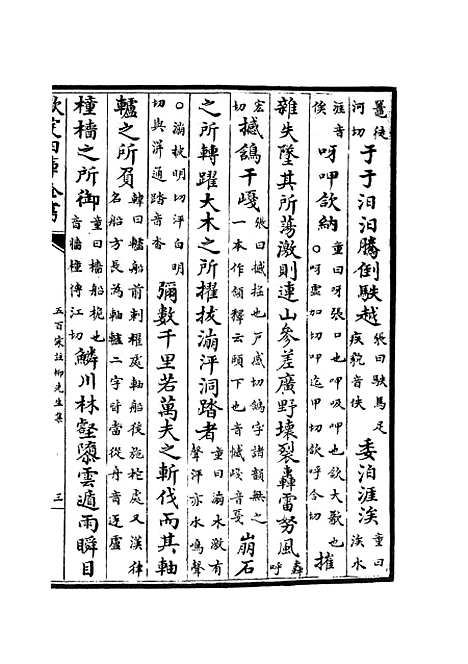 鼉徒河切于于汩汩騰倒駃越張曰駃馬足疾貌音佚委泊涯涘童曰涘水
涯音俟呀呷欱納○童曰呀張口也呷吸呷也欱大歠也呀虛加切呷迄甲切欱呼合切摧
雜失墜其所蕩激則連山參差廣野壞裂轟雷努風轟呼
宏切撼鴿干嵈張曰撼搖也戶感切鴿字諸韻無之一本作頷釋云頤下也音憾嵈音戛崩石
之所轉躍大木之所擢拔漰泙洞踏者童曰漰水激有聲泙亦水鳴聲
○漰披明切泙白明切與湃通踏音沓彌數千里若萬夫之斬伐而其軸
轤之所負韓曰轤船前刺櫂處軸船後施柁處又漢律名船方長為軸轤二字皆當從舟音逐盧
橦檣之所御童曰檣船桅也音牆橦傳江切鱗川林壑隳雲遁雨瞬目
欽定四庫全書
五百家註柳先生集
三